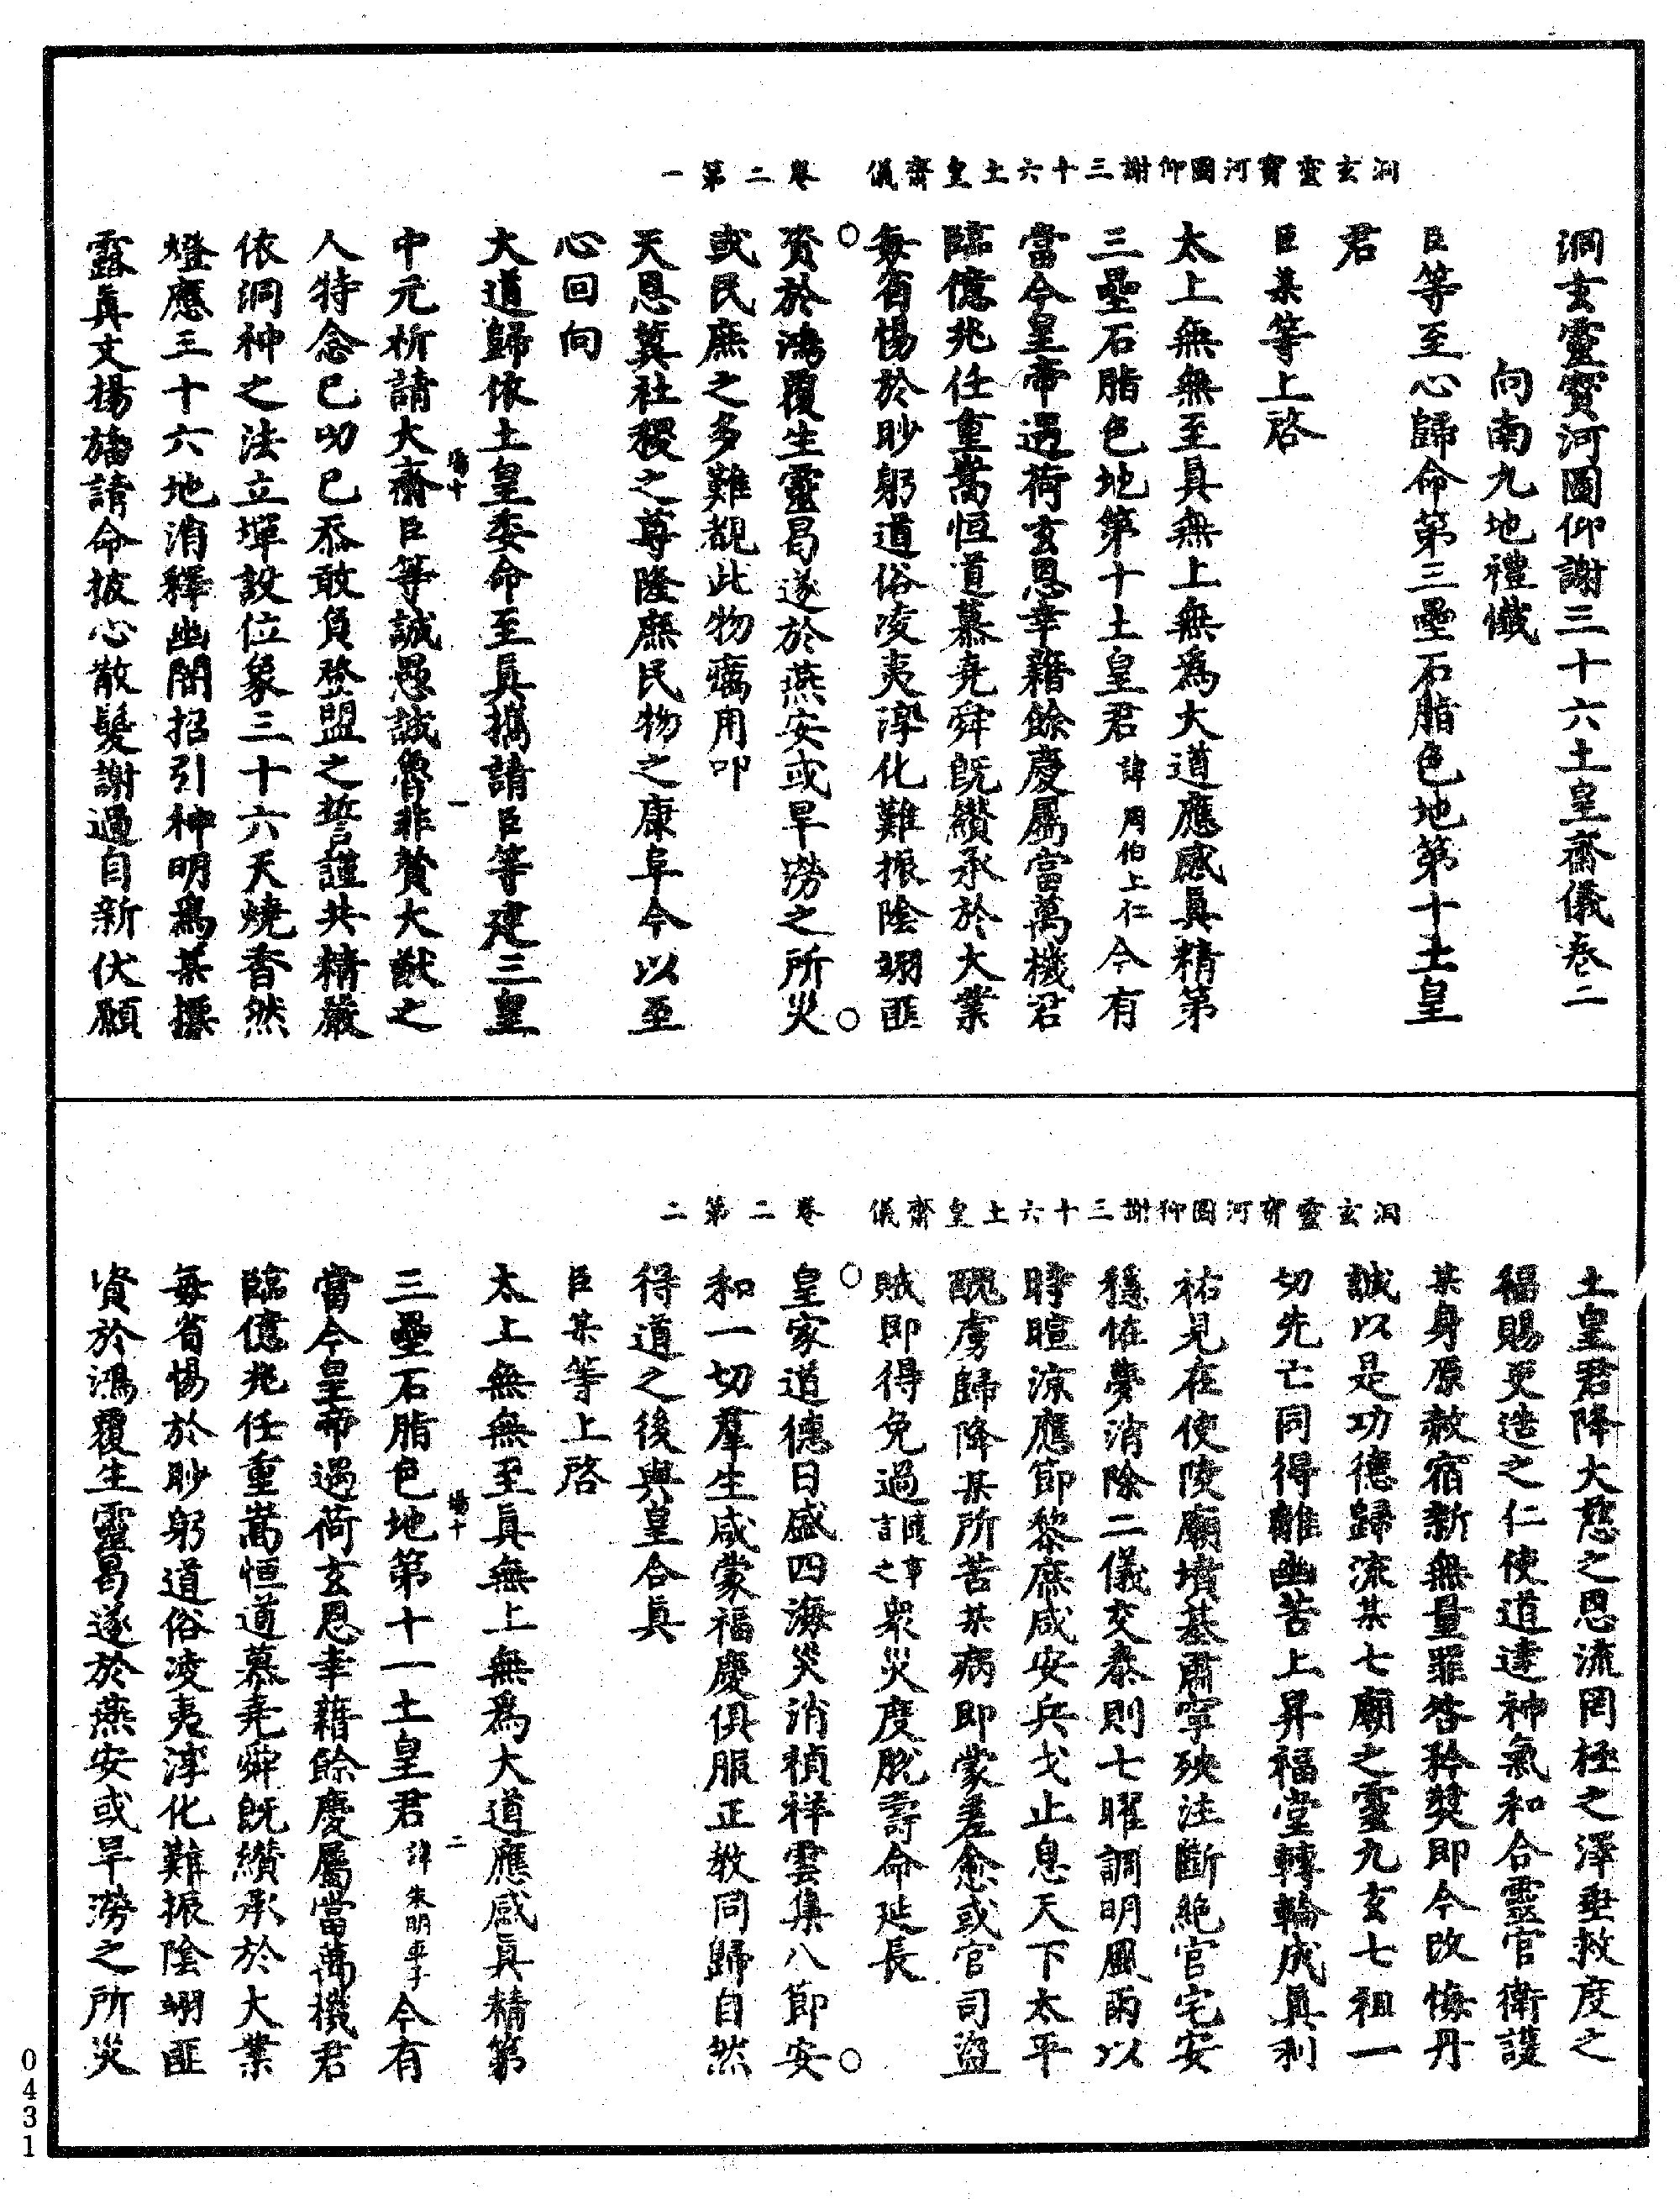 洞玄靈寶河圖仰謝三十六土皇齋儀　卷二第一
洞玄靈寶河圖仰謝三十六土皇齋儀卷二
向南九地禮懺
臣等至心歸命第三壘石脂色地第十土皇
君
臣某等上啓
太上無無至真無上無爲大道應感真精第
三壘石脂色地第十土皇君諱周伯上仁今有
當今皇帝遇荷玄恩幸藉餘慶屬當萬機君
臨億兆任重嵩恒道慕堯舜旣纘承於大業
每省惕於眇躬道俗凌夷淳化難振陰翊匪
資於鴻覆生靈曷遂於燕安或旱澇之所災
或民庶之多難覩此物癘用叩
天恩冀社稷之尊隆庶民物之康阜今以至
心回向
大道歸依土皇委命至真攜請臣等建三皇
中元祈請大齋臣等誠愚誠魯非贊大猷之
傷十
一
人特念已叨已忝敢負登盟之誓謹共精嚴
依洞神之法立墠設位象三十六天燒香然
燈應三十六地消釋幽關招引神明爲某攄
露真文揚旛請命披心散髮謝過自新伏願
洞玄靈寶河圖仰謝三十六土皇齋儀　卷二第二
土皇君降大慈之恩流罔極之澤垂救度之
福賜更造之仁使道達神氣和合靈官衛護
某身原赦宿新無量罪咎矜奬即今改悔丹
誠以是功德歸流某七廟之靈九玄七祖一
切先亡同得離幽苦上昇福堂轉輪成真利
祐見在使陵廟墳基肅寧殃注斷絕官宅安
穩恠夢消除二儀交泰則七曜調明風雨以
時暄涼應節黎庶咸安兵戈止息天下太平
醜虜歸降某所苦某病即蒙差愈或官司盜
賊即得免過隨事言之衆災度脫壽命延長
皇家道德日盛四海災消禎祥雲集八節安
和一切羣生咸蒙福慶俱服正教同歸自然
得道之後與皇合真
臣某等上啓
太上無無至真無上無爲大道應感真精第
傷十
二
三壘石脂色地第十一土皇君諱朱明平子今有
當今皇帝遇荷玄恩幸藉餘慶屬當萬機君
臨億兆任重嵩恒道慕堯舜旣纘承於大業
每省惕於眇躬道俗凌夷淳化難振陰翊匪
資於鴻覆生靈曷遂於燕安或旱澇之所災
0431